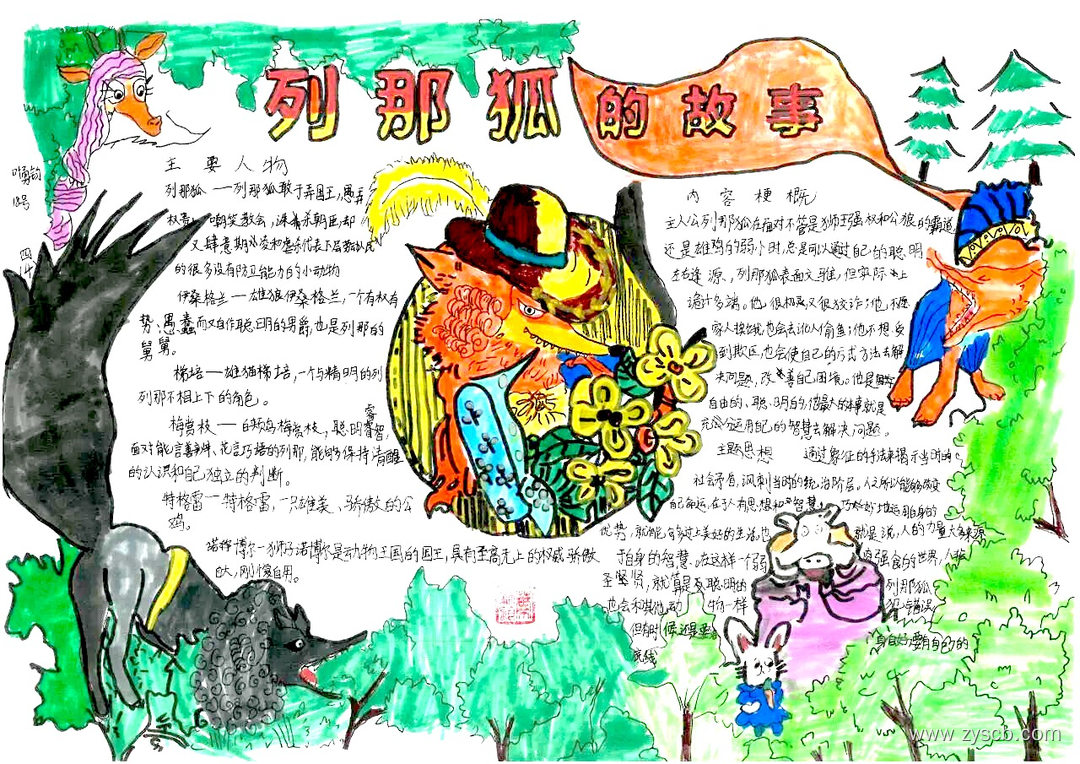 列那狐的故事
主要人物
列那狐——列那狐敢于弄国王,愚弄
权贵,嘲笑教会,深着禾朝臣,却
又肆意期凌和虐杀代表下层
的很多没有防卫能力的小动物
伊桑格兰——雄狼伊桑格兰,一个有权有
势、愚蠢而又自作聪明的男爵,也是列那的
舅舅。
梯培——雄猫梯培,一个与精明的列
列那不相上下的角色。
梅赏枝——白颊鸟梅赏枝,聪明睿智,
面对能言善辩、花言巧语的列那,能够保持清醒
的认识和自己独立的判断。
特格雷——特格雷,一只雄美、骄傲的公
鸡。
诺博尔——狮子诺博尔是动物王国的国王,具有至高无上的权威,骄傲
自大,刚愎自用。
内容梗概
主人公列那狐在面对不管是狮王强权和公狼的霸道
还是雄鸡的弱小时,总是可以通过自己的聪明
左右逢源,列那狐表面文雅,但实际上
诡计多端。他很机灵又很狡诈;他不愿
到欺压,也会使自己的方式方法去解
决问题,改善自己困境。他是
自由的、聪明的,他最大的本事就是
充分运用自己的智慧去解决问题。
主题思想 通过象征的手法来揭示当时
社会矛盾,讽刺当时的统治阶层。人之所以能够改变
自己命运,在于人有思想和智慧,巧妙地运用自身的
优势,就能享受上美好的生活,也就是说,人的力量大多来源
于自身的智慧。在这样一个弱肉强食的世界,
就算是聪明的列那狐,
也会和其他动物一样犯错误
但有时候还是要
www.zyscb.com